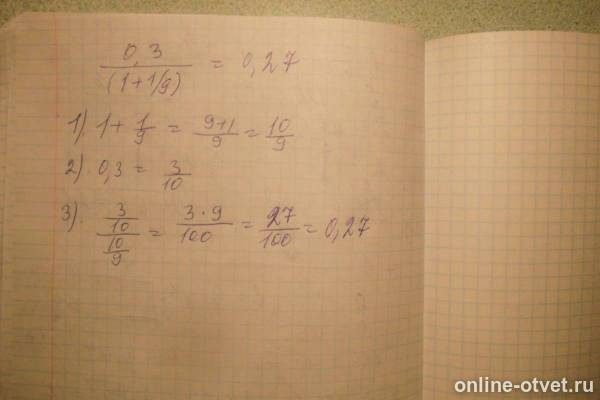 0,3/(1+1/9) = 0,27
1). 1 + 1/9 = 9+1/9 = 10/9
2). 0,3 = 3/10
3). 3/10/10/9 = 3·9/100 = 27/100 = 0,27
online-otvet.ru